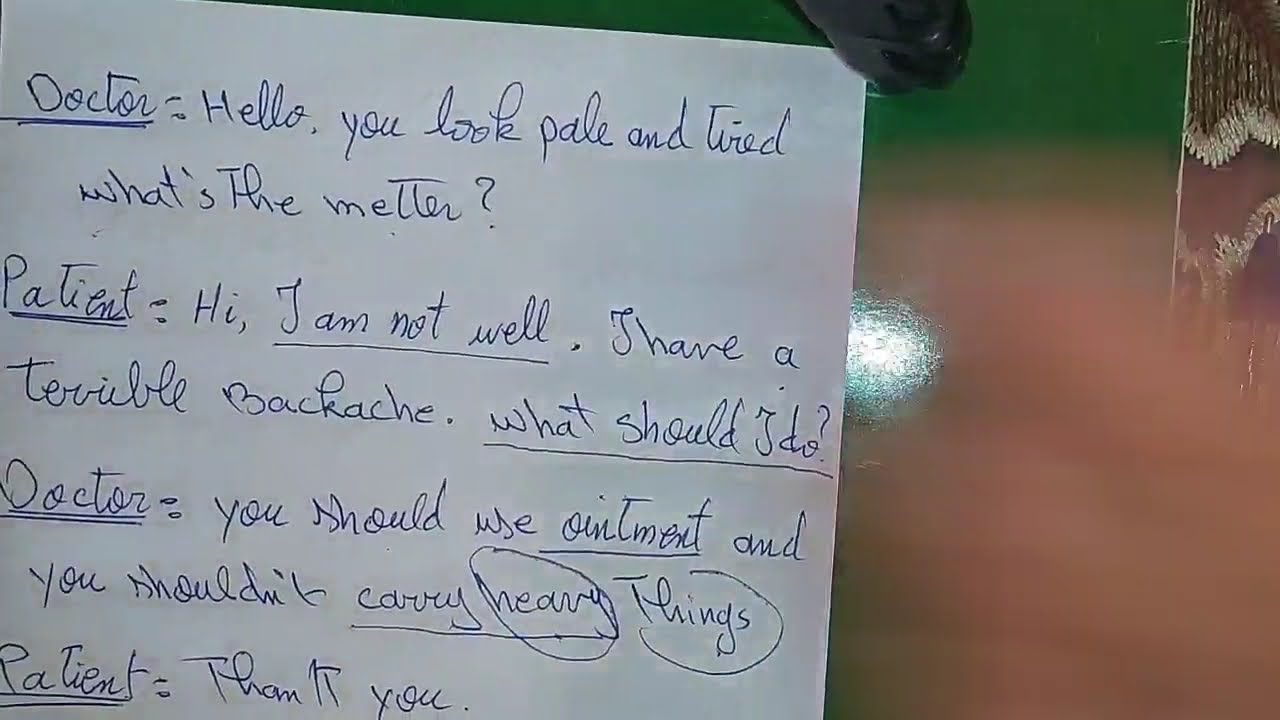 Doctor = Hello, you look pale and tired
what's the metter?
Patient = Hi, I am not well. I have a
terrible Backache. what should I do?
Doctor = you should use ointment and
you shouldn't carry heavy things
Patient = Thank you.